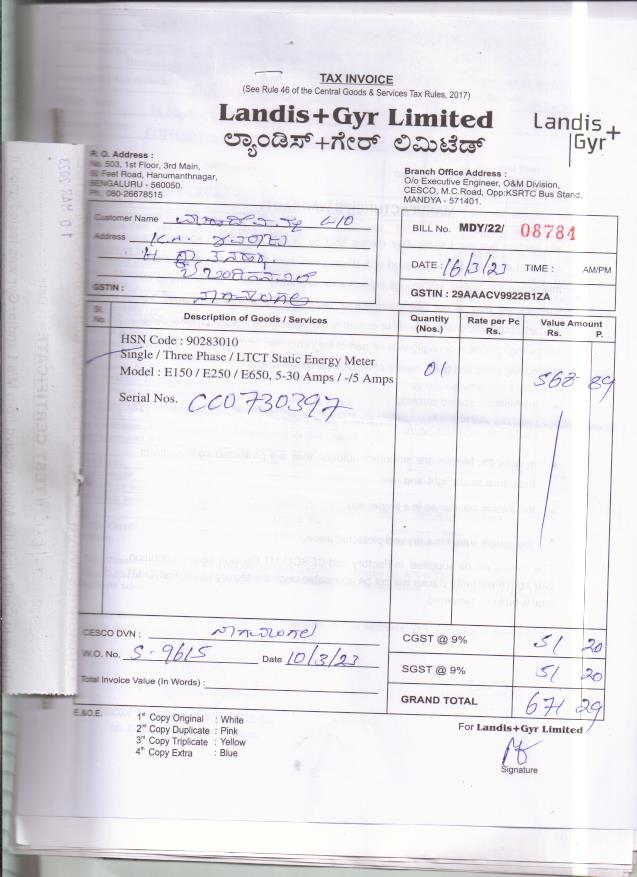 TAX INVOICE
(See Rule 46 of the Central Goods & Services Tax Rules, 2017)
Landis+Gyr Limited
ಲ್ಯಾಂಡಿಸ್+ಗೇರ್ ಲಿಮಿಟೆಡ್
Landis+
Gyr
R. O. Address :
No. 503, 1st Floor, 3rd Main,
Feet Road, Hanumanthnagar,
BENGALURU - 560050.
Ph.: 080-26678515
Branch Office Address :
O/o Executive Engineer, O&M Division,
CESCO, M.C.Road, Opp:KSRTC Bus Stand,
MANDYA - 571401.
10 MAR 2023
Customer Name
Address
GSTIN : ನಾಗಮಂಗಲ
BILL No. MDY/22/ 08784
DATE : 16/3/23 TIME : AM/PM
GSTIN : 29AAACV9922B1ZA
Sl. No. Description of Goods / Services Quantity (Nos.) Rate per Pc Rs. Value Amount Rs. P.
HSN Code : 90283010
Single / Three Phase / LTCT Static Energy Meter 01 568 89
Model : E150 / E250 / E650, 5-30 Amps / -/5 Amps
Serial Nos. CC0730397
CESCO DVN : ನಾಗಮಂಗಲ
W.O. No. S-9615 Date 10/3/23
Total Invoice Value (In Words) :
CGST @ 9% 51 20
SGST @ 9% 51 20
GRAND TOTAL 671 29
E.&O.E.
1st Copy Original : White
2nd Copy Duplicate : Pink
3rd Copy Triplicate : Yellow
4th Copy Extra : Blue
For Landis+Gyr Limited
Signature